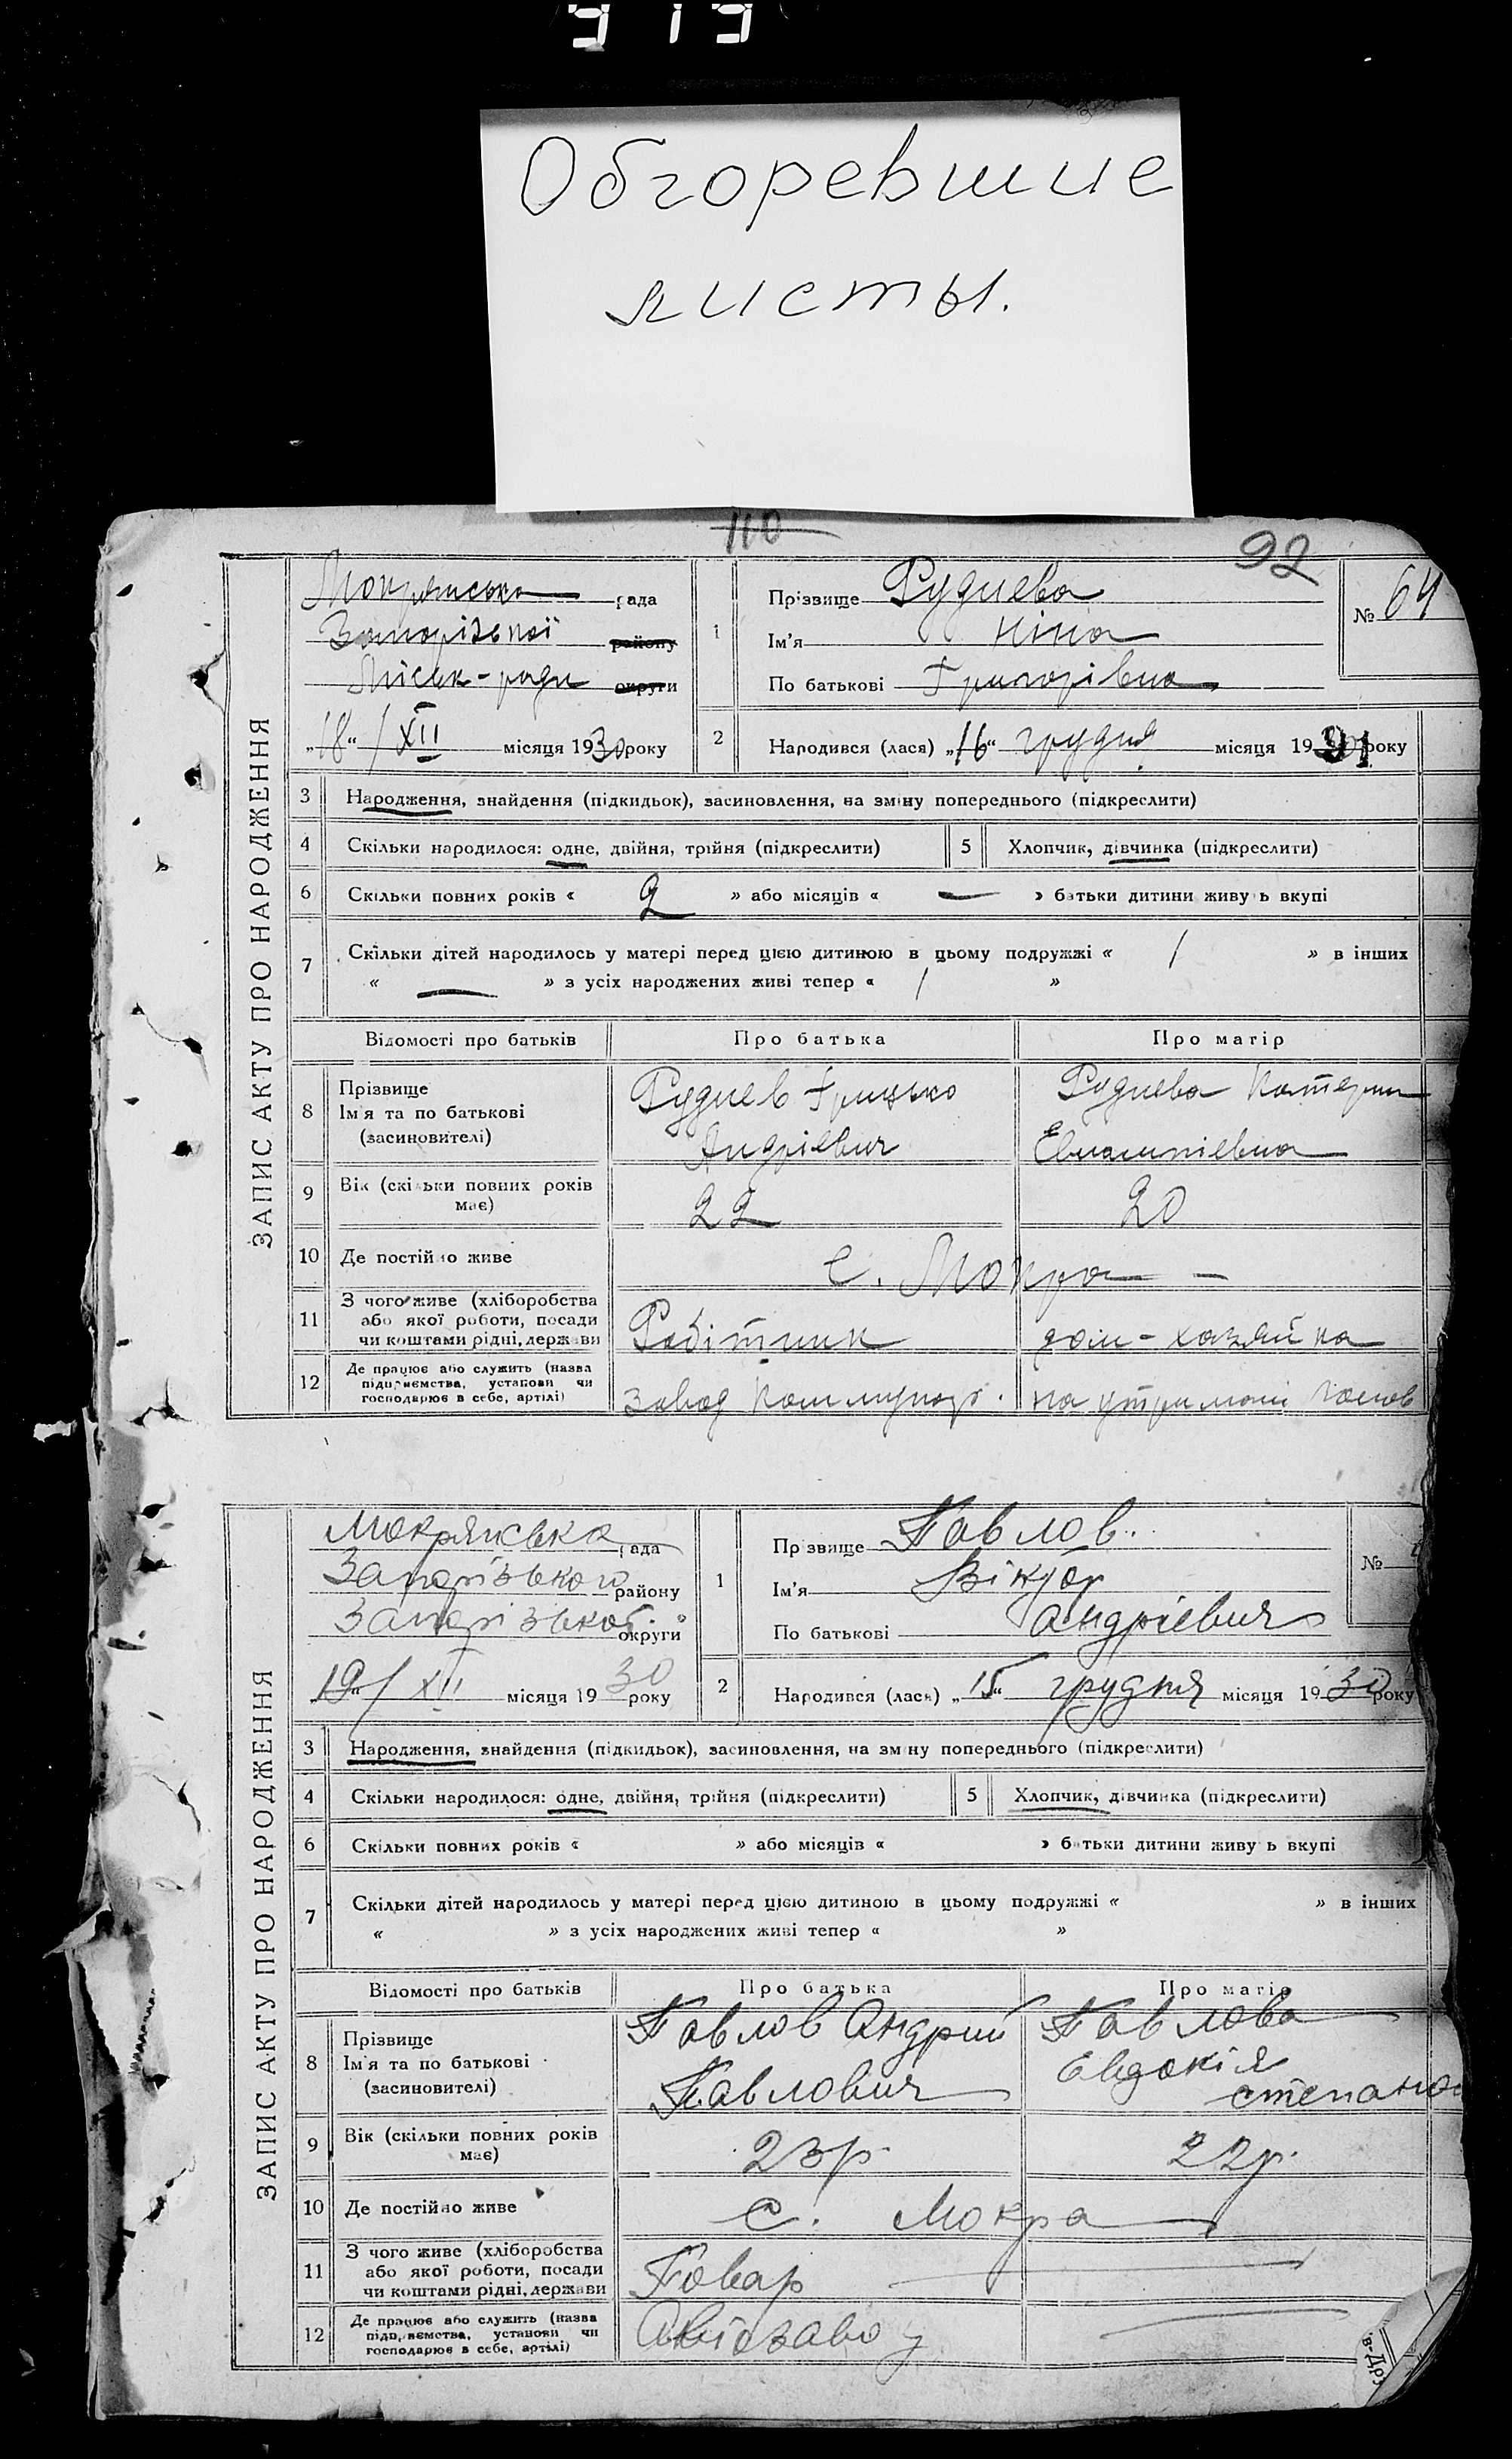 919
Обгоревшие
листы.
110
92
ЗАПИС АКТУ ПРО НАРОДЖЕННЯ
Мокрянська рада
Запорізької району
Міськ-ради округи
„18“ / XII місяця 1930 року
1
Прізвище Руднева
Ім'я Ніна
По батькові Григорівна
№ 64
2
Народився (лася) „16“ грудня місяця 19 року
91
3 Народження, знайдення (підкидьок), засиновлення, на зміну попереднього (підкреслити)
4 Скільки народилося: одне, двійня, трійня (підкреслити)
5 Хлопчик, дівчинка (підкреслити)
6 Скільки повних років « 2 » або місяців « — » батьки дитини живуть вкупі
7 Скільки дітей народилось у матері перед цією дитиною в цьому подружжі « 1 » в інших
« — » з усіх народжених живі тепер « 1 »
Відомості про батьків Про батька Про матір
8 Прізвище
Ім'я та по батькові
(засиновителі)
Руднев Грицько
Андріевич
Руднева Катерин
9 Вік (скільки повних років
має)
22 20
10 Де постійно живе с. Мокра —
11 З чого живе (хліборобства
або якої роботи, посади
чи коштами рідні, держави
Робітник дом-хазяйка
12 Де працює або служить (назва
підприємства, установи чи
господарює в себе, артілі)
завод Коммунар. на утримані
ЗАПИС АКТУ ПРО НАРОДЖЕННЯ
Мокрянська рада
Запорізького району
округи
„19“ / XII місяця 1930 року
1
Прізвище Павлов.
Ім'я Віктор
По батькові Андріевич
№
2
Народився (лася) „15“ грудня місяця 1930 року
3 Народження, знайдення (підкидьок), засиновлення, на зміну попереднього (підкреслити)
4 Скільки народилося: одне, двійня, трійня (підкреслити)
5 Хлопчик, дівчинка (підкреслити)
6 Скільки повних років « » або місяців « » батьки дитини живуть вкупі
7 Скільки дітей народилось у матері перед цією дитиною в цьому подружжі « » в інших
« » з усіх народжених живі тепер « »
Відомості про батьків Про батька Про матір
8 Прізвище
Ім'я та по батькові
(засиновителі)
Павлов Андрий
Павлович
Павлова
Евдокія
9 Вік (скільки повних років
має)
23р. 22р.
10 Де постійно живе с. Мокра
11 З чого живе (хліборобства
або якої роботи, посади
чи коштами рідні, держави
12 Де працює або служить (назва
підприємства, установи чи
господарює в себе, артілі)
Авіозавод